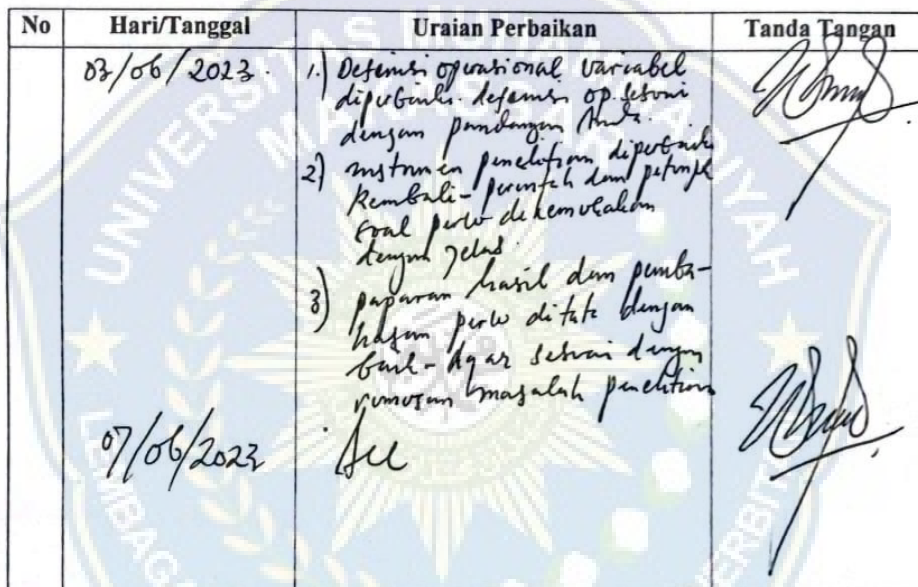 No Hari/Tanggal Uraian Perbaikan Tanda Tangan
03/06/2023. 1.) Definisi operasional variabel
diperbaiki. definisi op. sesuai
dengan pandangan Anda.
2) instrumen penelitian diperbaiki
kembali - perintah dan petunjuk
soal perlu dikemukakan
dengan jelas.
3) paparan hasil dan pemba-
hasan perlu ditata dengan
baik - agar sesuai dengan
rumusan masalah penelitian
07/06/2023 Acc
UNIVERSITAS MUHAMMADIYAH
MAKASSAR
LEMBAGA